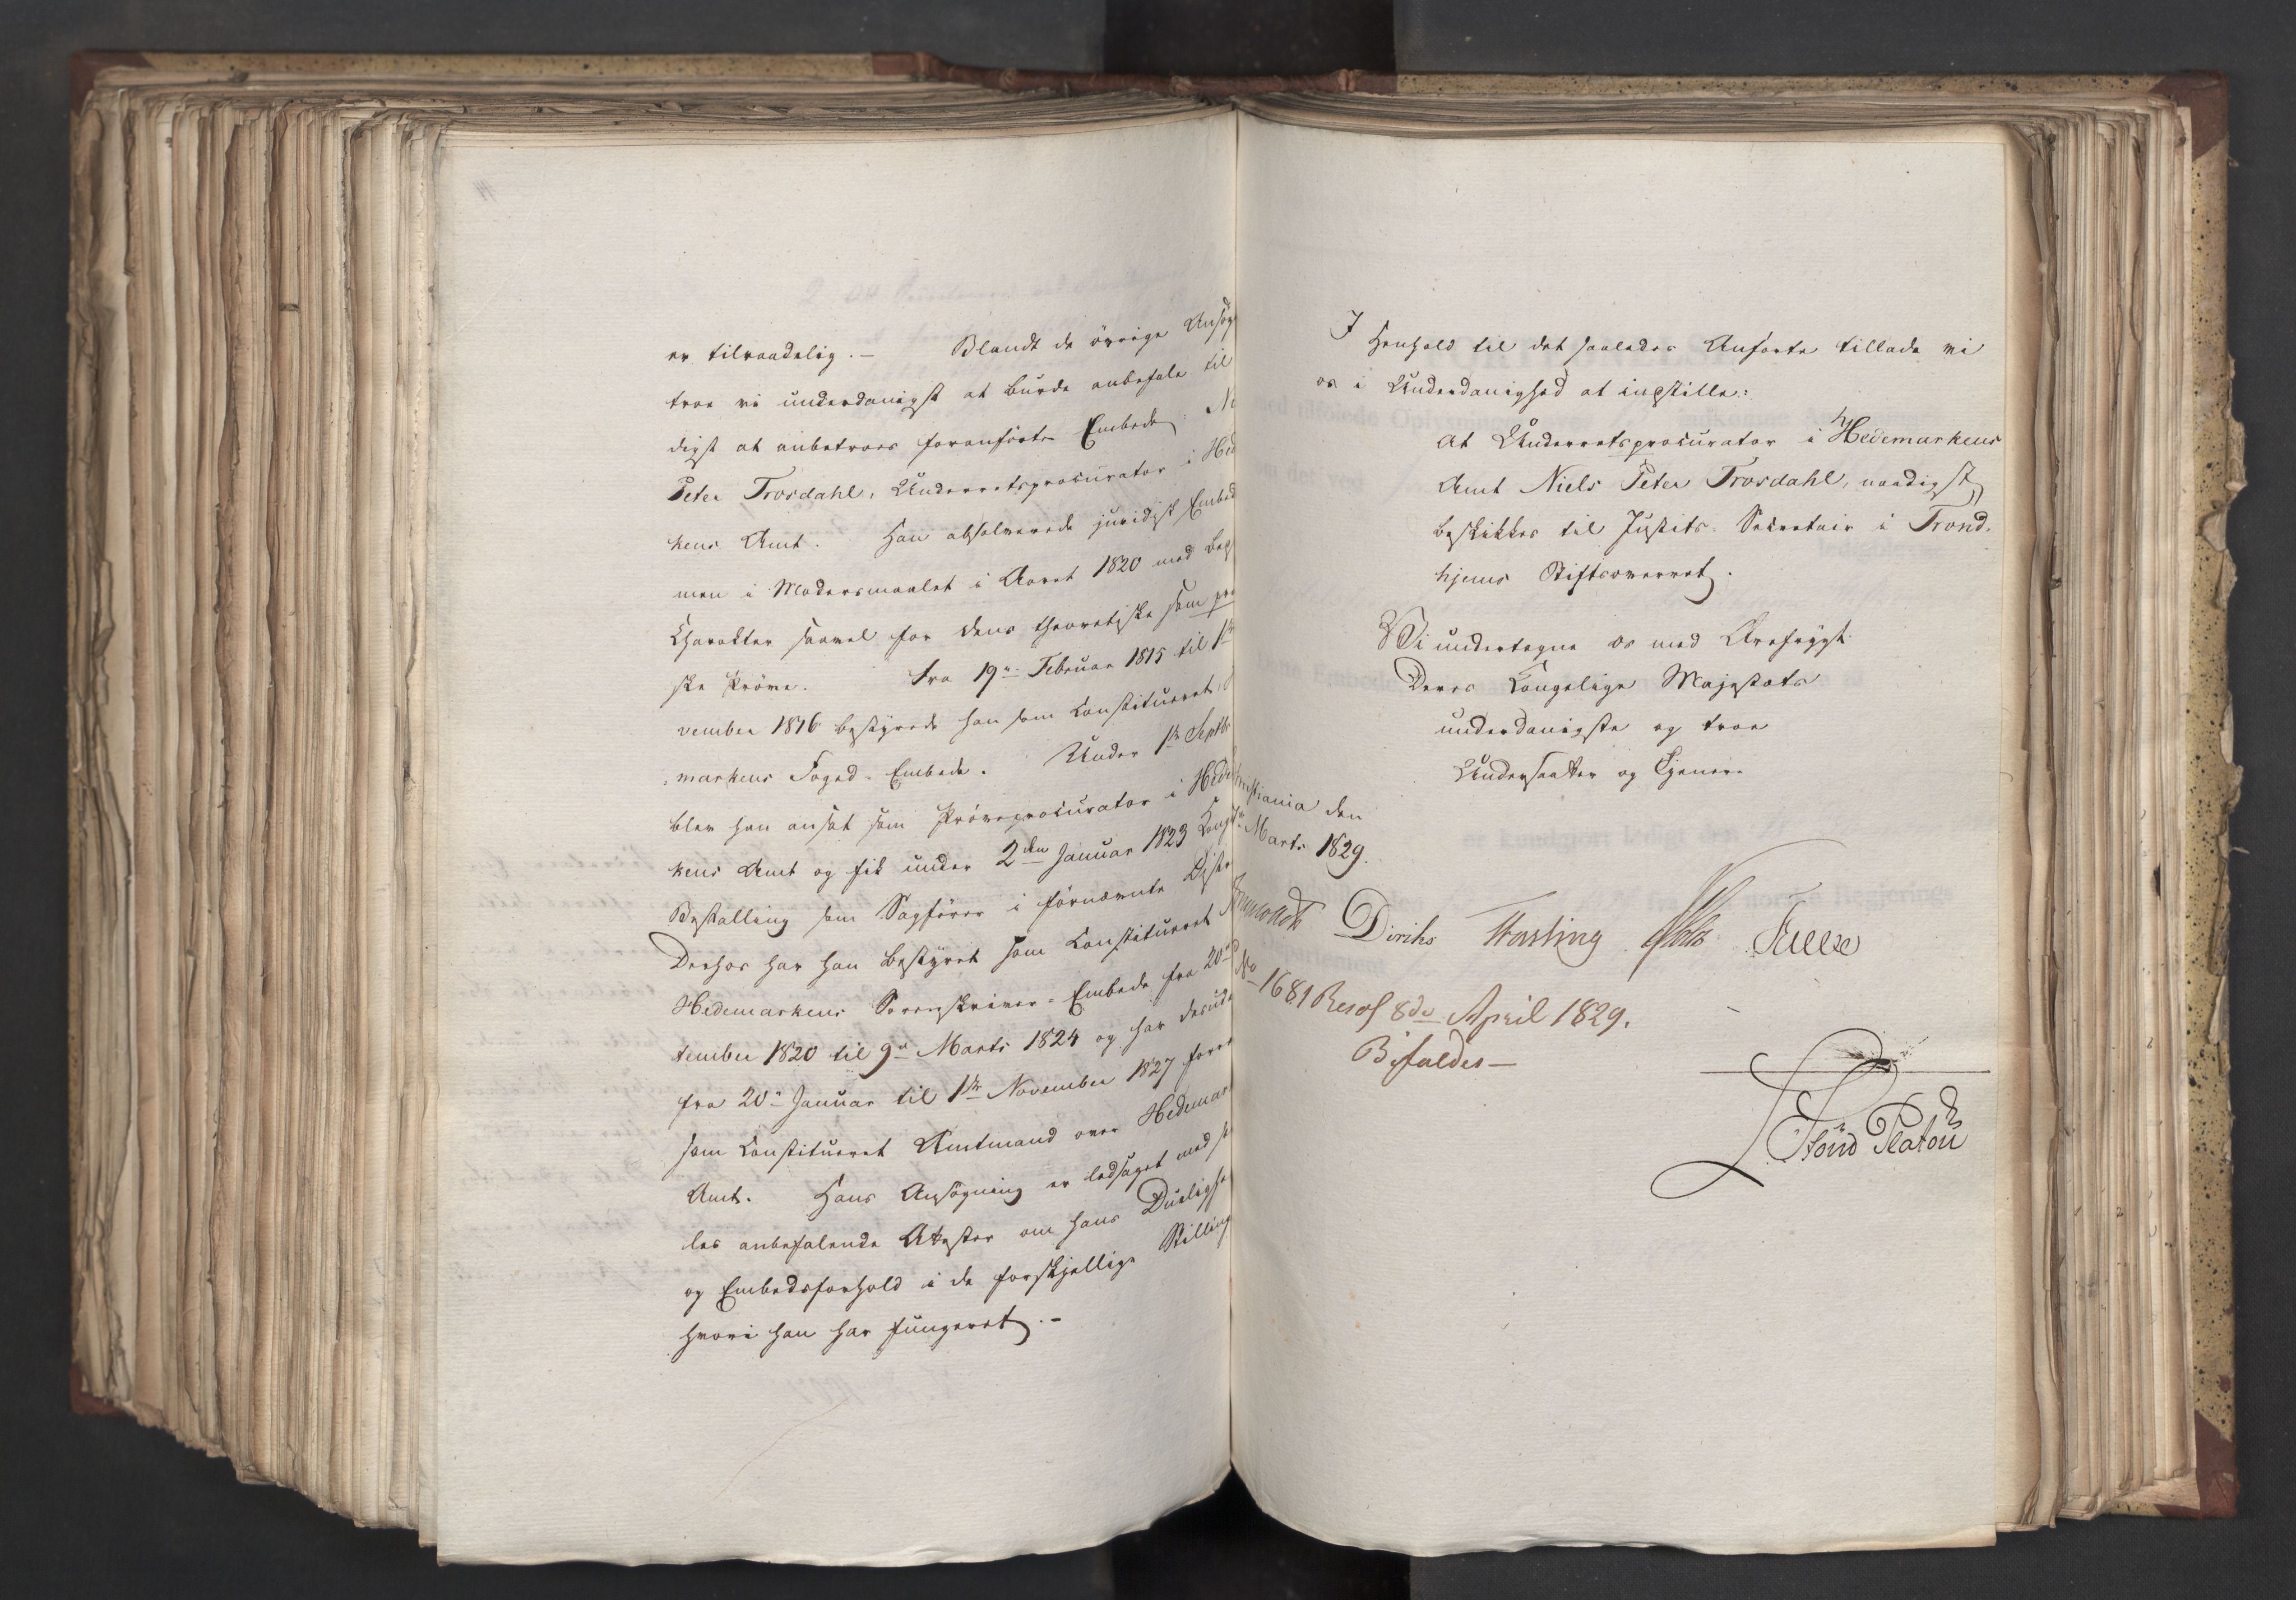 er tilraadelig. — Blandt de övrige Ansög
troe vi underdanigst at burde anbefale til
digst at anbetroes foranførte Embede, N
Peter Trosdahl, Underretsprocurator i Hed
kens Amt. Han absolverede juridisk Embed
men i Modersmaalet i Aaret 1820 med beq
Charakter saavel for dens theoretiske som pra
ske Pröve. Fra 19de Februar 1815 til 1ste
vember 1816 bestyrede han som Constitueret,
markens Foged-Embede. Under 1ste Septbr
blev han ansat som Pröveprocurator i Hede
kens Amt og fik under 2den Januar 1823 Kongel
Bestalling som Sagfører i fornævnte Distr
Derhos har han bestyret som Constitueret
Hedemarkens Sorenskriver-Embede fra 20de
tember 1820 til 9de Marts 1824 og har desude
fra 20de Januar til 1ste November 1827 forre
som Constitueret Amtmand over Hedemar
Amt. Hans Ansögning er ledsaget med s
les anbefalende Attester om hans Dueligh
og Embedsforhold i de forskjellige Stilling
hvori han har fungeret. —
I Henhold til det saaledes Anførte tillade vi
os i Underdanighed at indstille:
At Underretsprocurator i Hedemarkens
Amt Niels Peter Trosdahl, naadigst
beskikkes til Justits-Secretair i Trond-
hjems Stiftsoverret.
Vi undertegne os med Ærefrygt
Deres Kongelige Majestæts
underdanigste og troe
Undersaatter og Tjenere
hristiania den
Marts 1829.
Diriks Fasting Falsen
No 1681 Resol 8de April 1829.
Bifaldes —
Stoud Platou